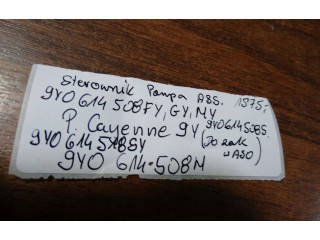 Sterownik Pompa ABS. 1975,-
9Y0614508FY, GY, MY
P. Cayenne 9Y 9Y0614508S
9Y0614508SY (Do zak
w ASO)
9Y0 614-508M